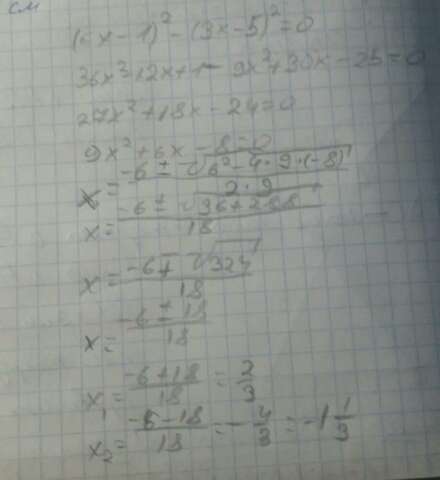 см
(6x-1)²-(3x-5)²=0
36x²-12x+1-9x²+30x-25=0
27x²+18x-24=0
9x²+6x-8=0
x=(-6±√(6²-4·9·(-8)))/(2·9)
x=(-6±√(36+288))/18
x=(-6±√324)/18
x=(-6±18)/18
x₁=(-6+18)/18=2/3
x₂=(-6-18)/18=-4/3=-1 1/3